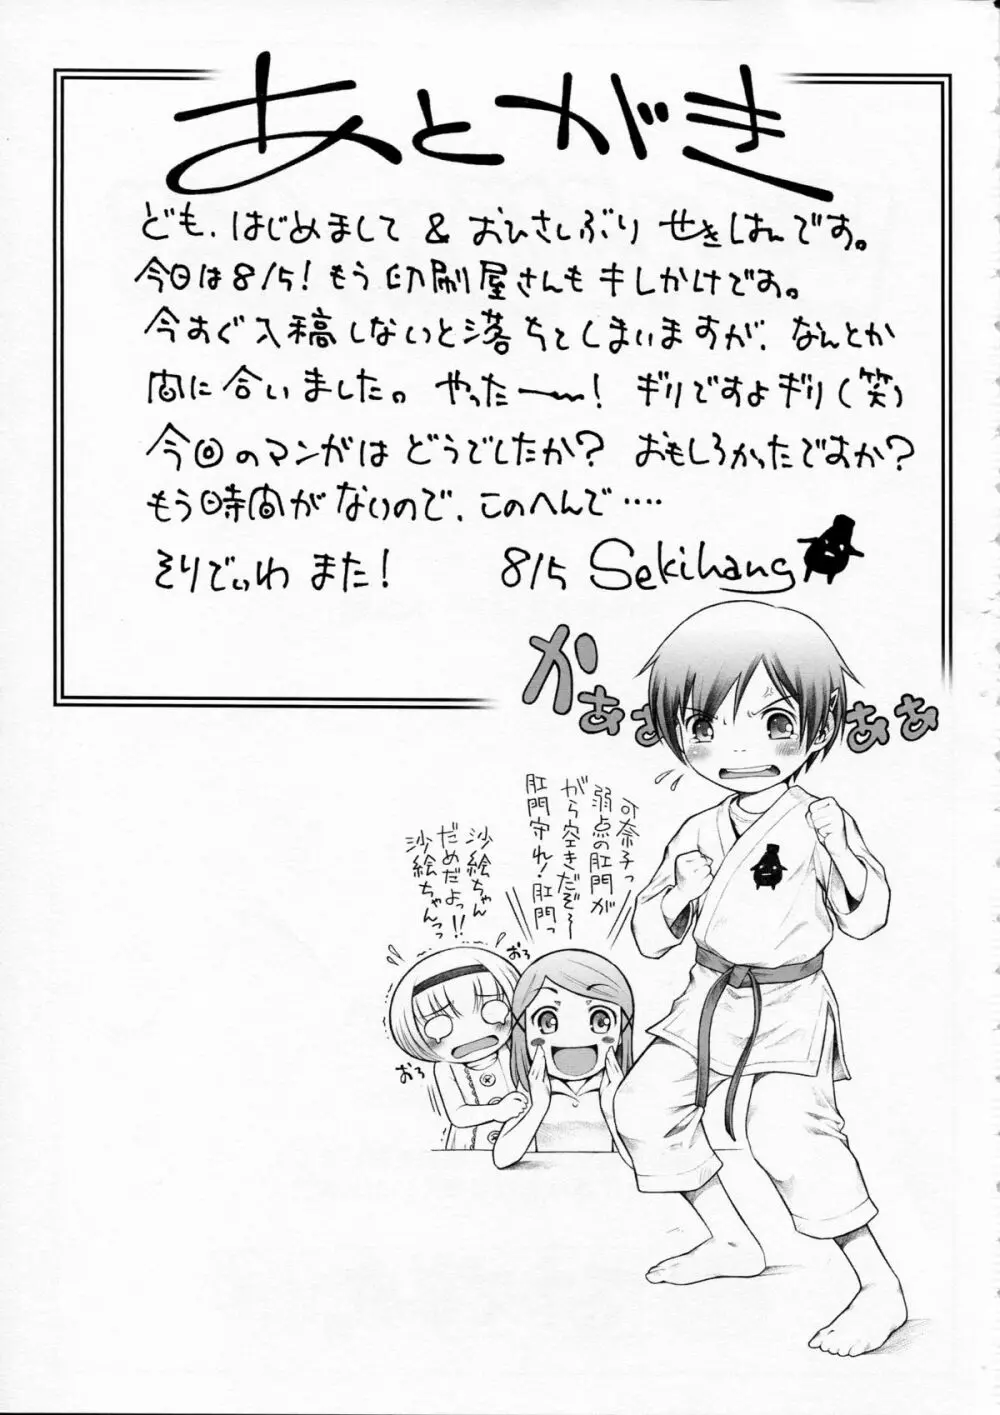 あとがき
ども、はじめまして & おひさしぶり せきはんです。
今日は8/5！もう印刷屋さんもキしかけです。
今すぐ入稿しないと落ちてしまいますが、なんとか
間に合いました。やったー〜！ ギリですよギリ（笑）
今回のマンガは どうでしたか？ おもしろかったですか？
もう時間がないので、このへんで‥‥
そりでぃわ また！ 8/5 Sekihang
かぁぁ
ああ
可奈子っ
弱点の肛門が
がら空きだぞ〜
肛門守れ！肛門っ
沙絵ちゃん
だめだよっ!!
沙絵ちゃんっっ
おろ
おろ